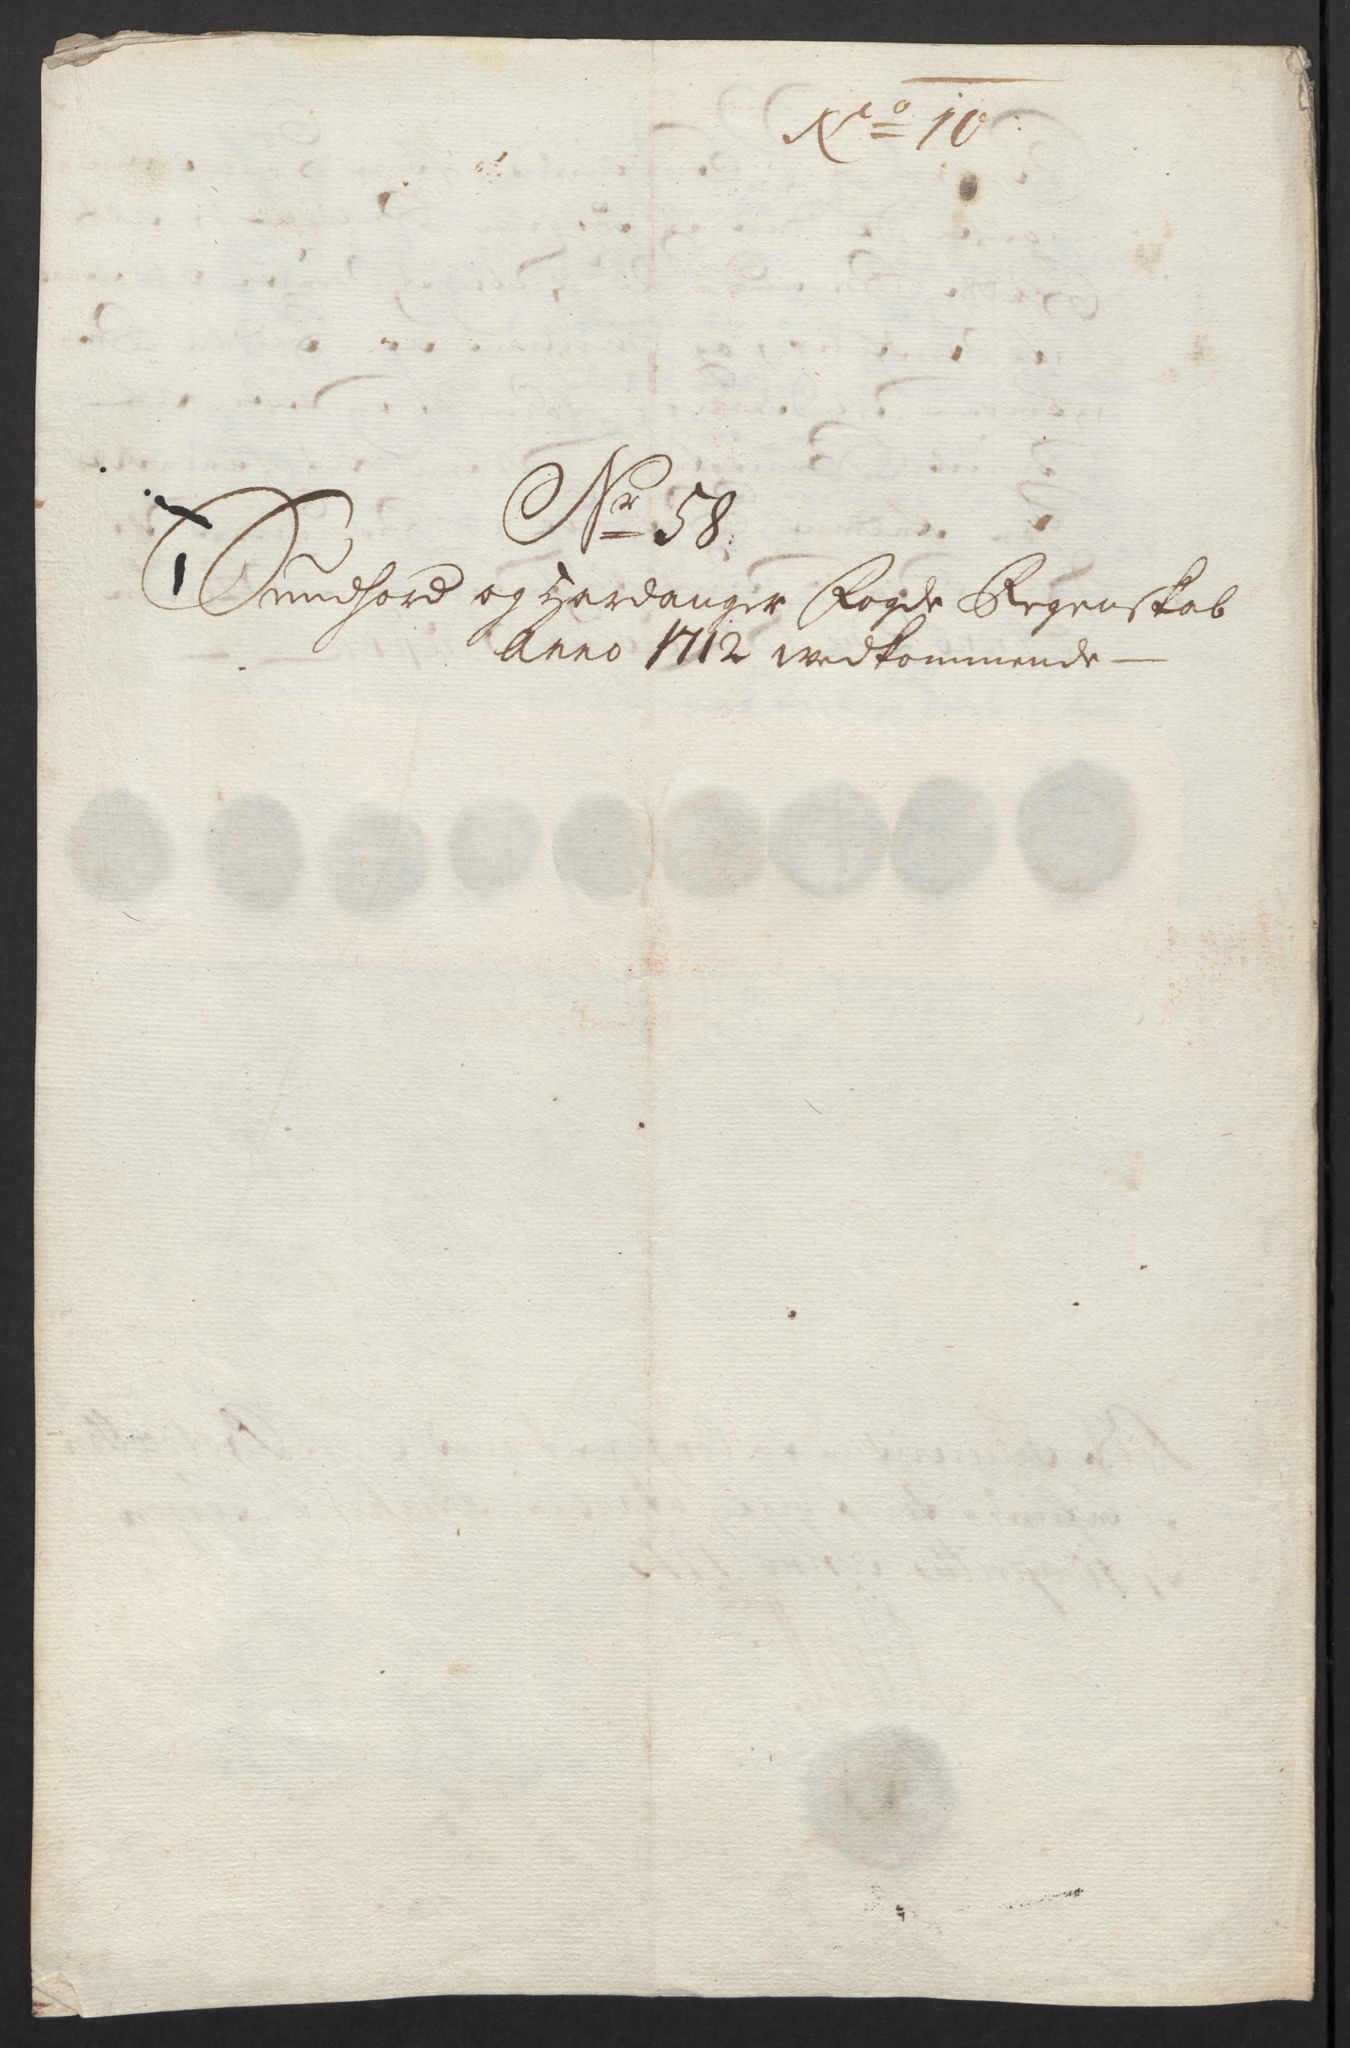 No 10
Nr 58.
Sundhord og Hardanger Fogde Regenskab
Anno 1712 wedkommende